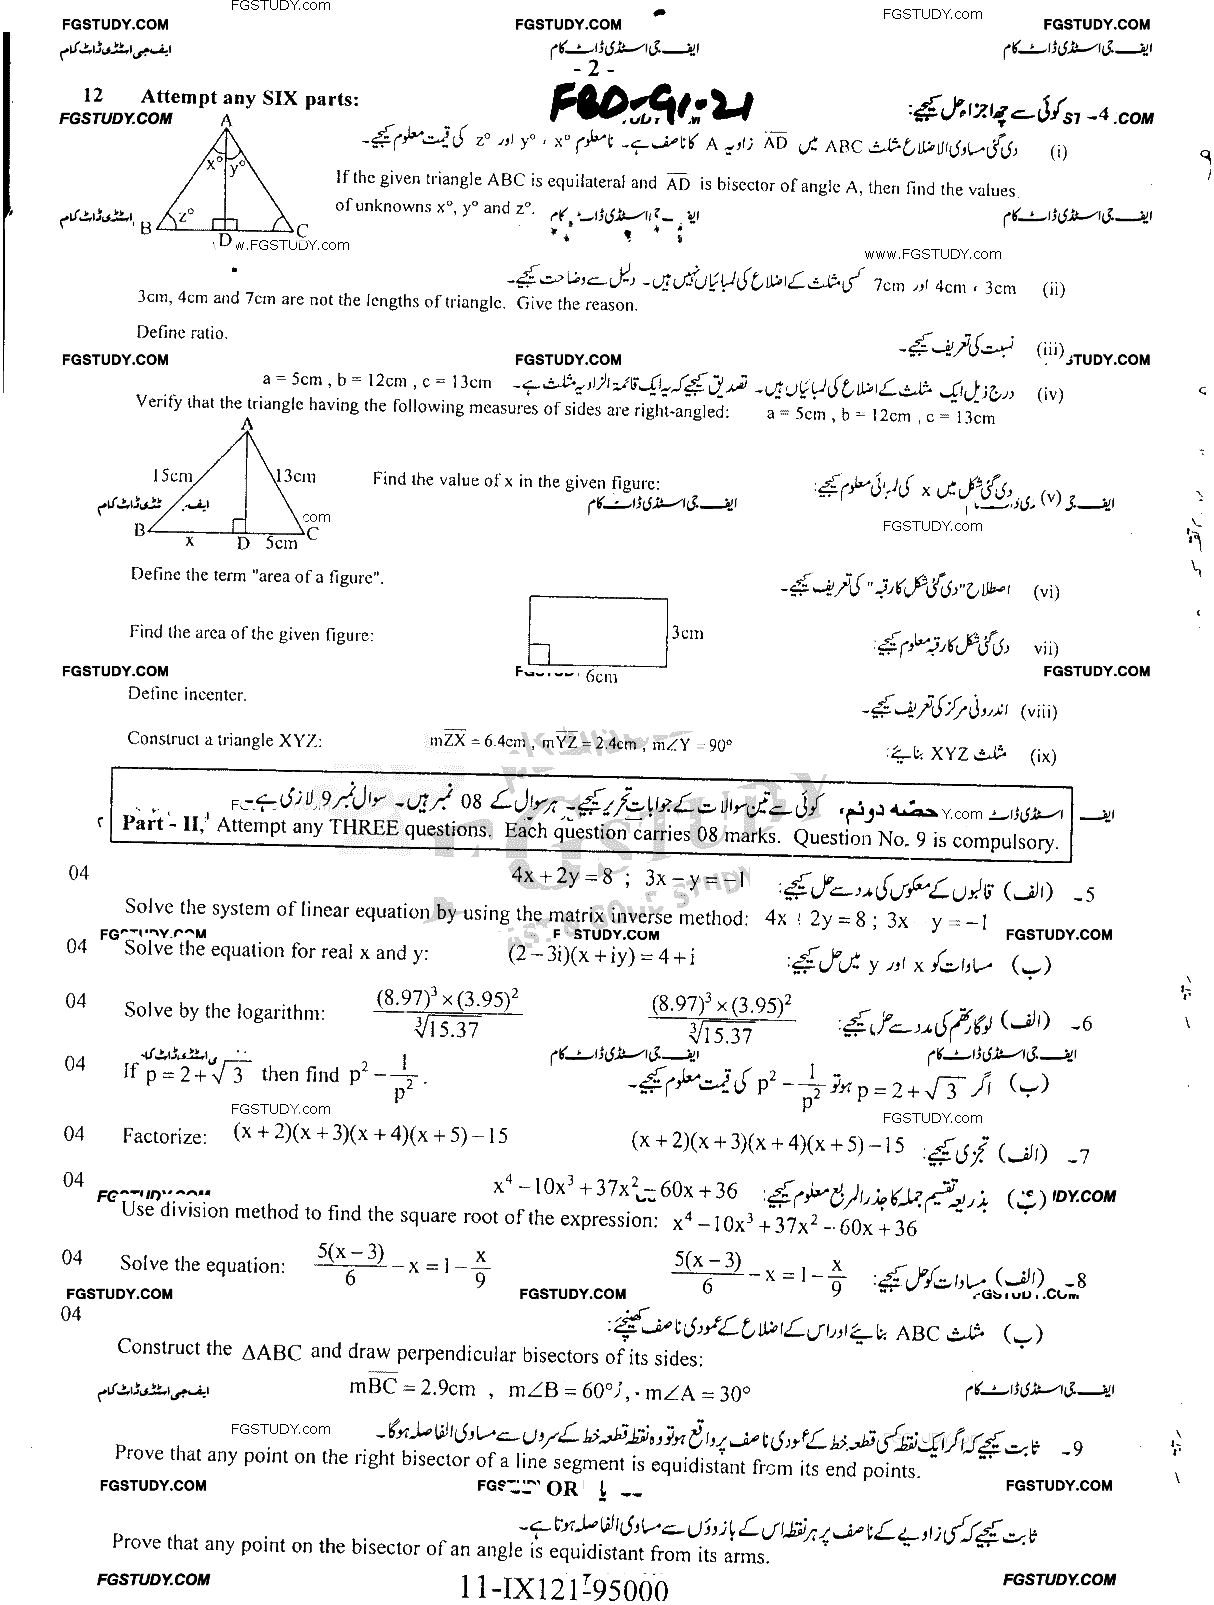 FGSTUDY.COM FGSTUDY.COM FGSTUDY.COM
FGSTUDY.COM FGSTUDY.COM
ایف جی اسٹڈی ڈاٹ کام ایف جی اسٹڈی ڈاٹ کام ایف جی اسٹڈی ڈاٹ کام
- 2 -
12 Attempt any SIX parts: FBD-G1-21 کوئی سے چھ اجزاء حل کیجیے: -4
FGSTUDY.COM .COM
(i) دی گئی مساوی الاضلاع مثلث ABC میں AD زاویہ A کا ناصف ہے۔ نامعلوم x° ، y° اور z° کی قیمت معلوم کیجیے۔
A
x° y°
z°
B D C
If the given triangle ABC is equilateral and AD is bisector of angle A, then find the values
of unknowns x°, y° and z°.
ایف جی اسٹڈی ڈاٹ کام
w.FGSTUDY.com www.FGSTUDY.com
(ii) 3cm ، 4cm اور 7cm کسی مثلث کے اضلاع کی لمبائیاں نہیں ہیں۔ دلیل سے وضاحت کیجیے۔
3cm, 4cm and 7cm are not the lengths of triangle. Give the reason.
Define ratio. (iii) نسبت کی تعریف کیجیے۔
FGSTUDY.COM FGSTUDY.COM STUDY.COM
(iv) درج ذیل ایک مثلث کے اضلاع کی لمبائیاں ہیں۔ تصدیق کیجیے کہ یہ ایک قائمۃ الزاویہ مثلث ہے۔ a = 5cm , b = 12cm , c = 13cm
Verify that the triangle having the following measures of sides are right-angled: a = 5cm , b = 12cm , c = 13cm
A
15cm 13cm
B x D 5cm C
Find the value of x in the given figure: (v) دی گئی شکل میں x کی لمبائی معلوم کیجیے:
ایف جی اسٹڈی ڈاٹ کام
com FGSTUDY.com
Define the term "area of a figure". (vi) اصطلاح "دی گئی شکل کا رقبہ" کی تعریف کیجیے۔
Find the area of the given figure: 3cm vii) دی گئی شکل کا رقبہ معلوم کیجیے:
6cm
FGSTUDY.COM FGSTUDY.COM
Define incenter. (viii) اندرونی مرکز کی تعریف کیجیے۔
Construct a triangle XYZ: mZX = 6.4cm , mYZ = 2.4cm , m∠Y = 90° (ix) مثلث XYZ بنائیے:
حصہ دوئم، کوئی سے تین سوالات کے جوابات تحریر کیجیے۔ ہر سوال کے 08 نمبر ہیں۔ سوال نمبر 9 لازمی ہے۔
Part - II, Attempt any THREE questions. Each question carries 08 marks. Question No. 9 is compulsory.
04 4x + 2y = 8 ; 3x - y = -1 5۔ (الف) قالبوں کے معکوس کی مدد سے حل کیجیے:
Solve the system of linear equation by using the matrix inverse method: 4x + 2y = 8 ; 3x y = -1
STUDY.COM FGSTUDY.COM
04 Solve the equation for real x and y: (2 - 3i)(x + iy) = 4 + i (ب) مساوات کو x اور y میں حل کیجیے:
04 Solve by the logarithm: (8.97)³ × (3.95)² / ∛15.37 (8.97)³ × (3.95)² / ∛15.37 6۔ (الف) لوگارتھم کی مدد سے حل کیجیے:
ایف جی اسٹڈی ڈاٹ کام ایف جی اسٹڈی ڈاٹ کام
04 If p = 2 + √3 then find p² - 1/p². (ب) اگر p = 2 + √3 ہو تو p² - 1/p² کی قیمت معلوم کیجیے۔
FGSTUDY.com FGSTUDY.com
04 Factorize: (x + 2)(x + 3)(x + 4)(x + 5) - 15 (x + 2)(x + 3)(x + 4)(x + 5) - 15 7۔ (الف) تجزی کیجیے:
04 x⁴ - 10x³ + 37x² - 60x + 36 (ب) بذریعہ تقسیم جملہ کا جذر المربع معلوم کیجیے:
Use division method to find the square root of the expression: x⁴ - 10x³ + 37x² - 60x + 36
04 Solve the equation: 5(x - 3)/6 - x = 1 - x/9 5(x - 3)/6 - x = 1 - x/9 8۔ (الف) مساوات کو حل کیجیے:
FGSTUDY.COM FGSTUDY.COM
04 (ب) مثلث ABC بنائیے اور اس کے اضلاع کے عمودی ناصف کھینچئے:
Construct the ΔABC and draw perpendicular bisectors of its sides:
mBC = 2.9cm , m∠B = 60° , m∠A = 30°
ایف جی اسٹڈی ڈاٹ کام ایف جی اسٹڈی ڈاٹ کام
FGSTUDY.com
9۔ ثابت کیجیے کہ اگر ایک نقطہ کسی قطعہ خط کے عمودی ناصف پر واقع ہو تو وہ نقطہ قطعہ خط کے سروں سے مساوی الفاصلہ ہوگا۔
Prove that any point on the right bisector of a line segment is equidistant from its end points.
FGSTUDY.COM OR FGSTUDY.COM
ثابت کیجیے کہ کسی زاویے کے ناصف پر ہر نقطہ اس کے بازوؤں سے مساوی الفاصلہ ہوتا ہے۔
Prove that any point on the bisector of an angle is equidistant from its arms.
FGSTUDY.COM FGSTUDY.COM
11-IX121-95000